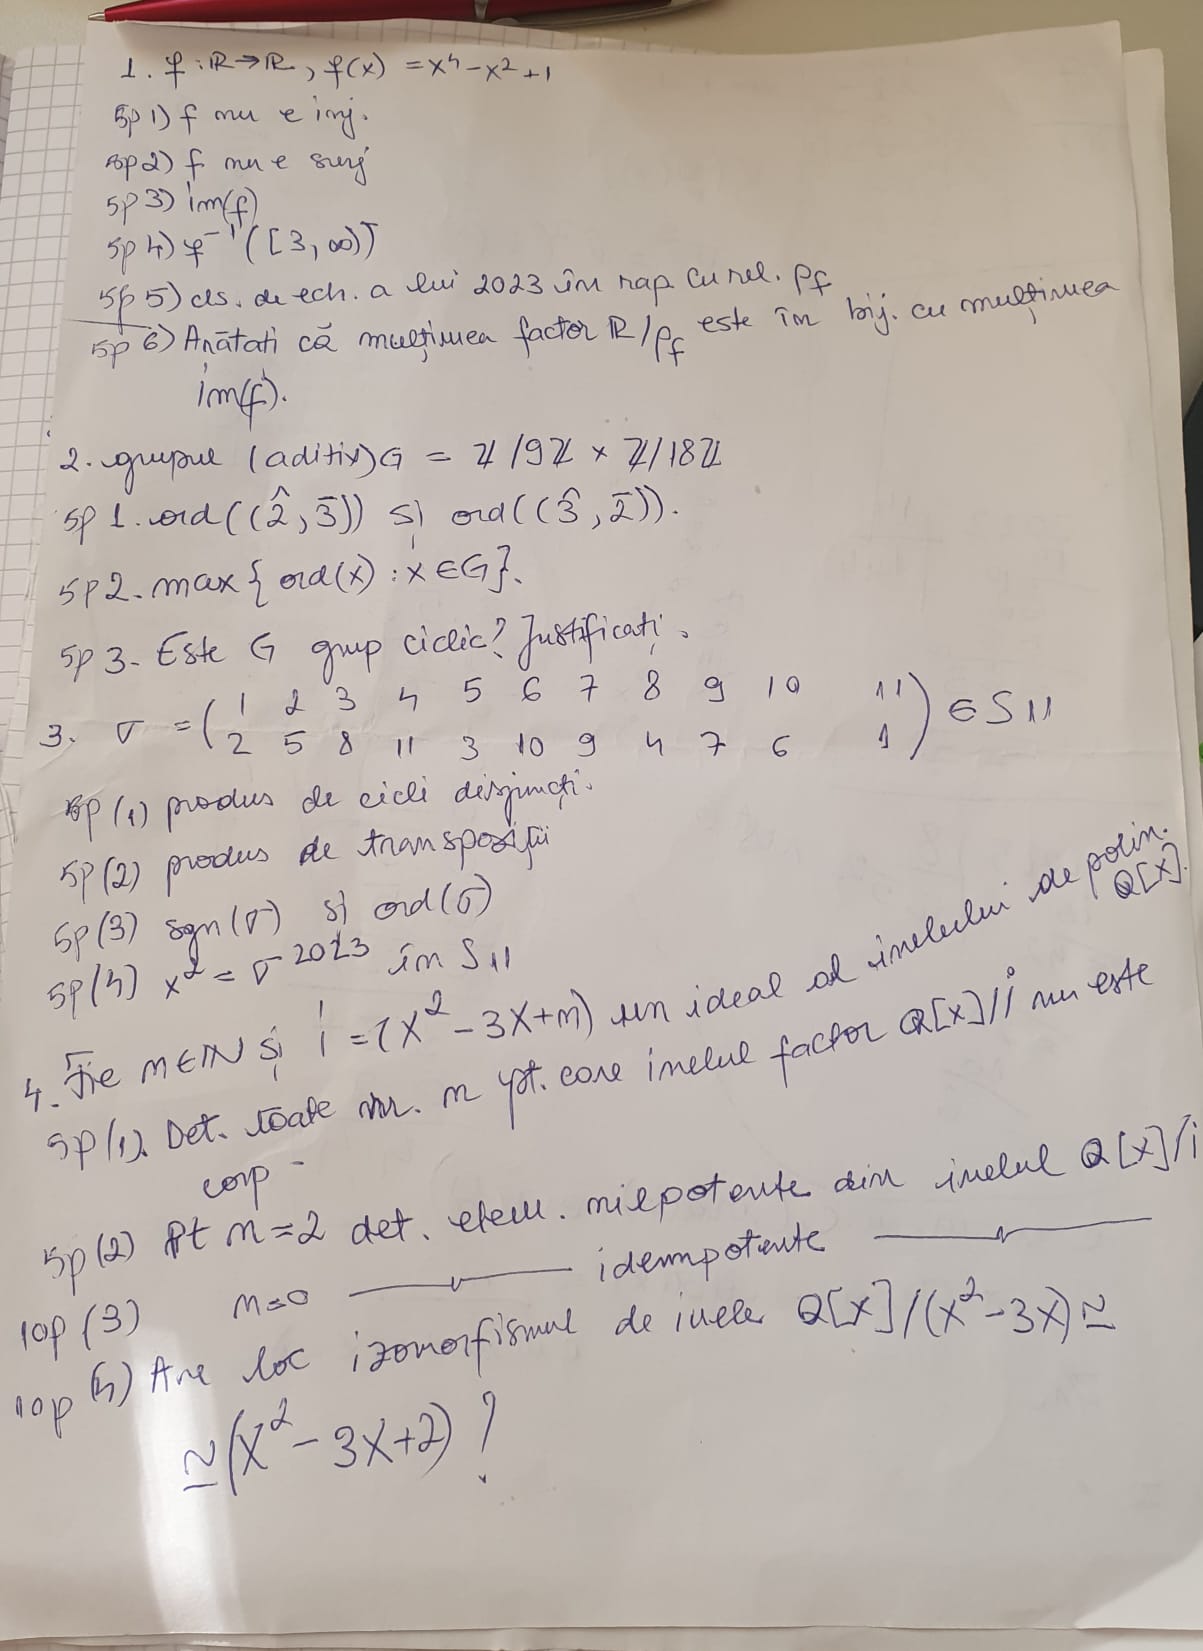 1. f : ℝ → ℝ, f(x) = x⁴ - x² + 1
5p 1) f nu e inj.
5p 2) f nu e surj
5p 3) im(f)
5p 4) f⁻¹([3, ∞))
5p 5) cls. de ech. a lui 2023 în rap cu rel. ρf
5p 6) Arătati că mulțimea factor ℝ/ρf este în bij. cu mulțimea
im(f).
2. grupul (aditiv) G = ℤ/9ℤ × ℤ/18ℤ
5p 1. ord((2̂, 3̄)) și ord((3̂, 2̄)).
5p 2. max{ord(x) : x ∈ G}.
5p 3. Este G grup ciclic? Justificați.
3. σ = (1 2 3 4 5 6 7 8 9 10 11
2 5 8 11 3 10 9 4 7 6 1) ∈ S11
5p (1) produs de cicli disjuncți.
5p (2) produs de transpoziții
5p (3) sgn(σ) și ord(σ)
5p (4) x² = σ²⁰²³ în S11
4. Fie n ∈ ℕ și i = (X² - 3X + n) un ideal al inelului de polin. Q[X].
5p (1). Det. toate nr. n pt. care inelul factor Q[X]/i nu este
corp
5p (2) Pt n = 2 det. elem. nilpotente din inelul Q[X]/i
10p (3) n = 0 —〃— idempotente —〃—
10p (4) Are loc izomorfismul de inele Q[X]/(X² - 3X) ≃
≃ (X² - 3X + 2) ?